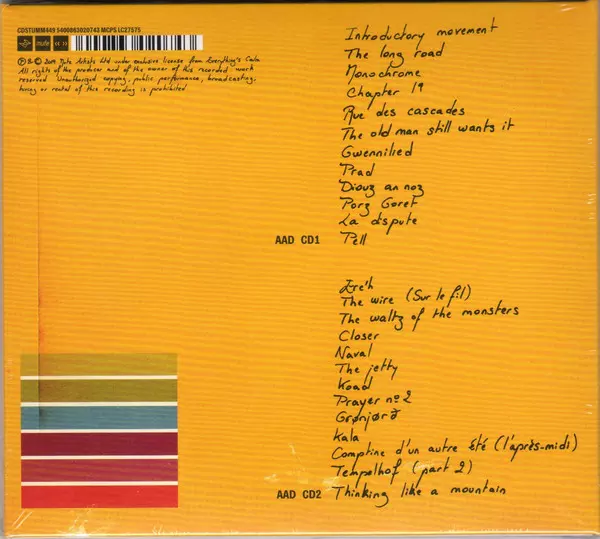 CDSTUMM449 5400863020743 MCPS LC27575
mute
℗ & © 2019 Mute Artists Ltd under exclusive license from Everything's Calm
All rights of the producer and of the owner of this recorded work
reserved Unauthorised copying, public performance, broadcasting,
hiring or rental of this recording is prohibited
Introductory movement
The long road
Monochrome
Chapter 19
Rue des cascades
The old man still wants it
Gwennilied
Prad
Diouz an noz
Porz Goret
La dispute
AAD CD1 Pell
Ere'h
The wire (Sur le fil)
The waltz of the monsters
Closer
Naval
The jetty
Koad
Prayer nº 2
Grønjørð
Kala
Comptine d'un autre été (l'après-midi)
Tempelhof (part 2)
AAD CD2 Thinking like a mountain